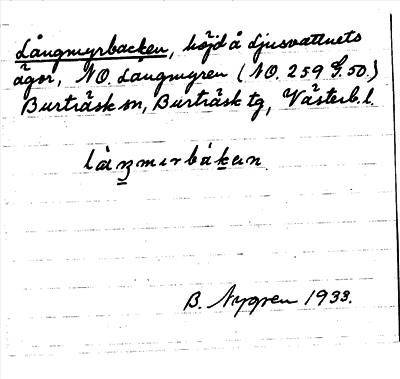 Långmyrbacken, höjd å Ljusvattnets
ägor, NO. Långmyren (NO. 259 S. 50.)
Burträsk sn, Burträsk tg, Västerb. l.
B. Nygren 1933.